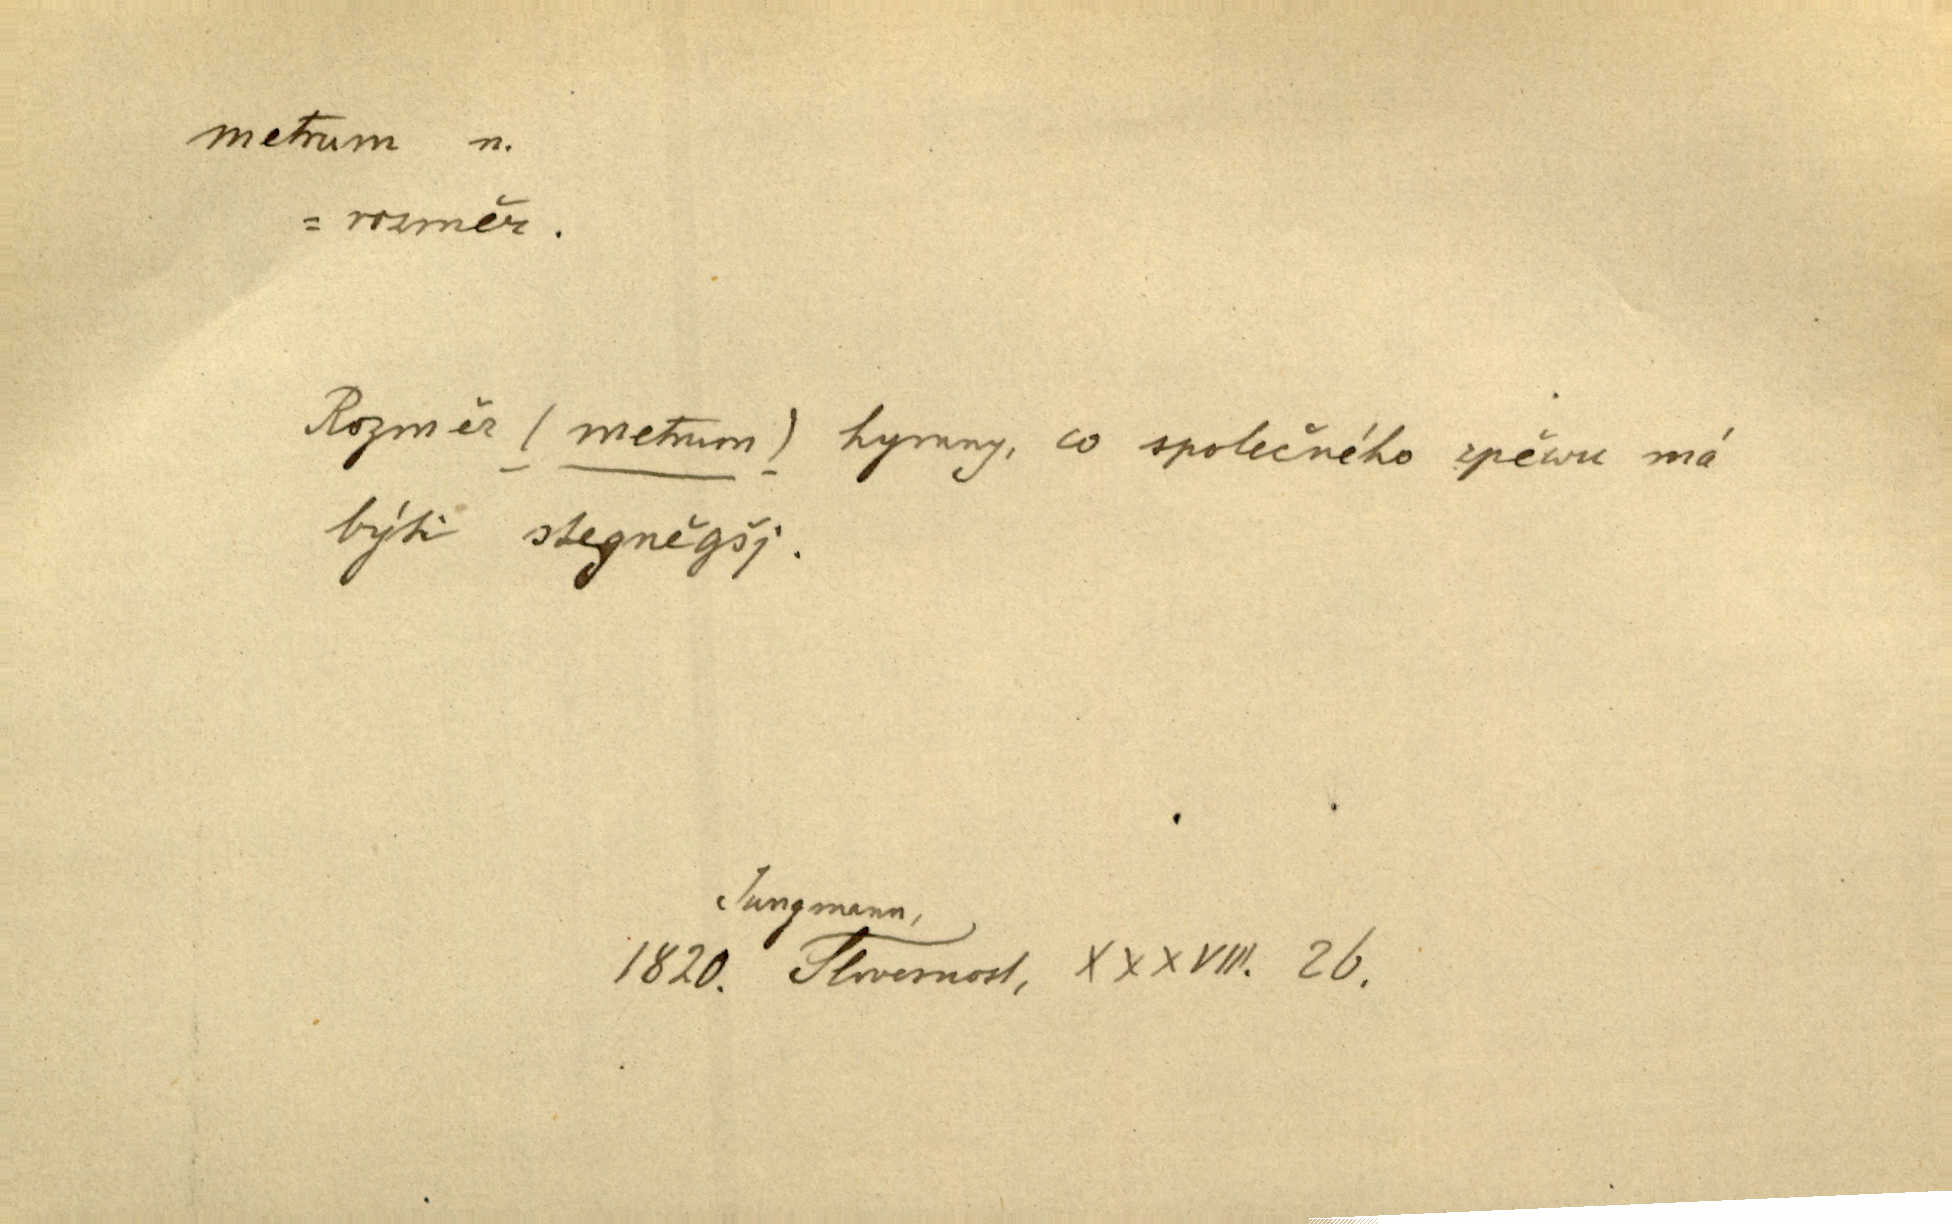 metrum n.
= rozměr.
Rozměr (metrum) hymny, co společného zpěwu má
býti stegněgšj.
Jungmann,
1820. Slovesnost, XXXVIII. 26.